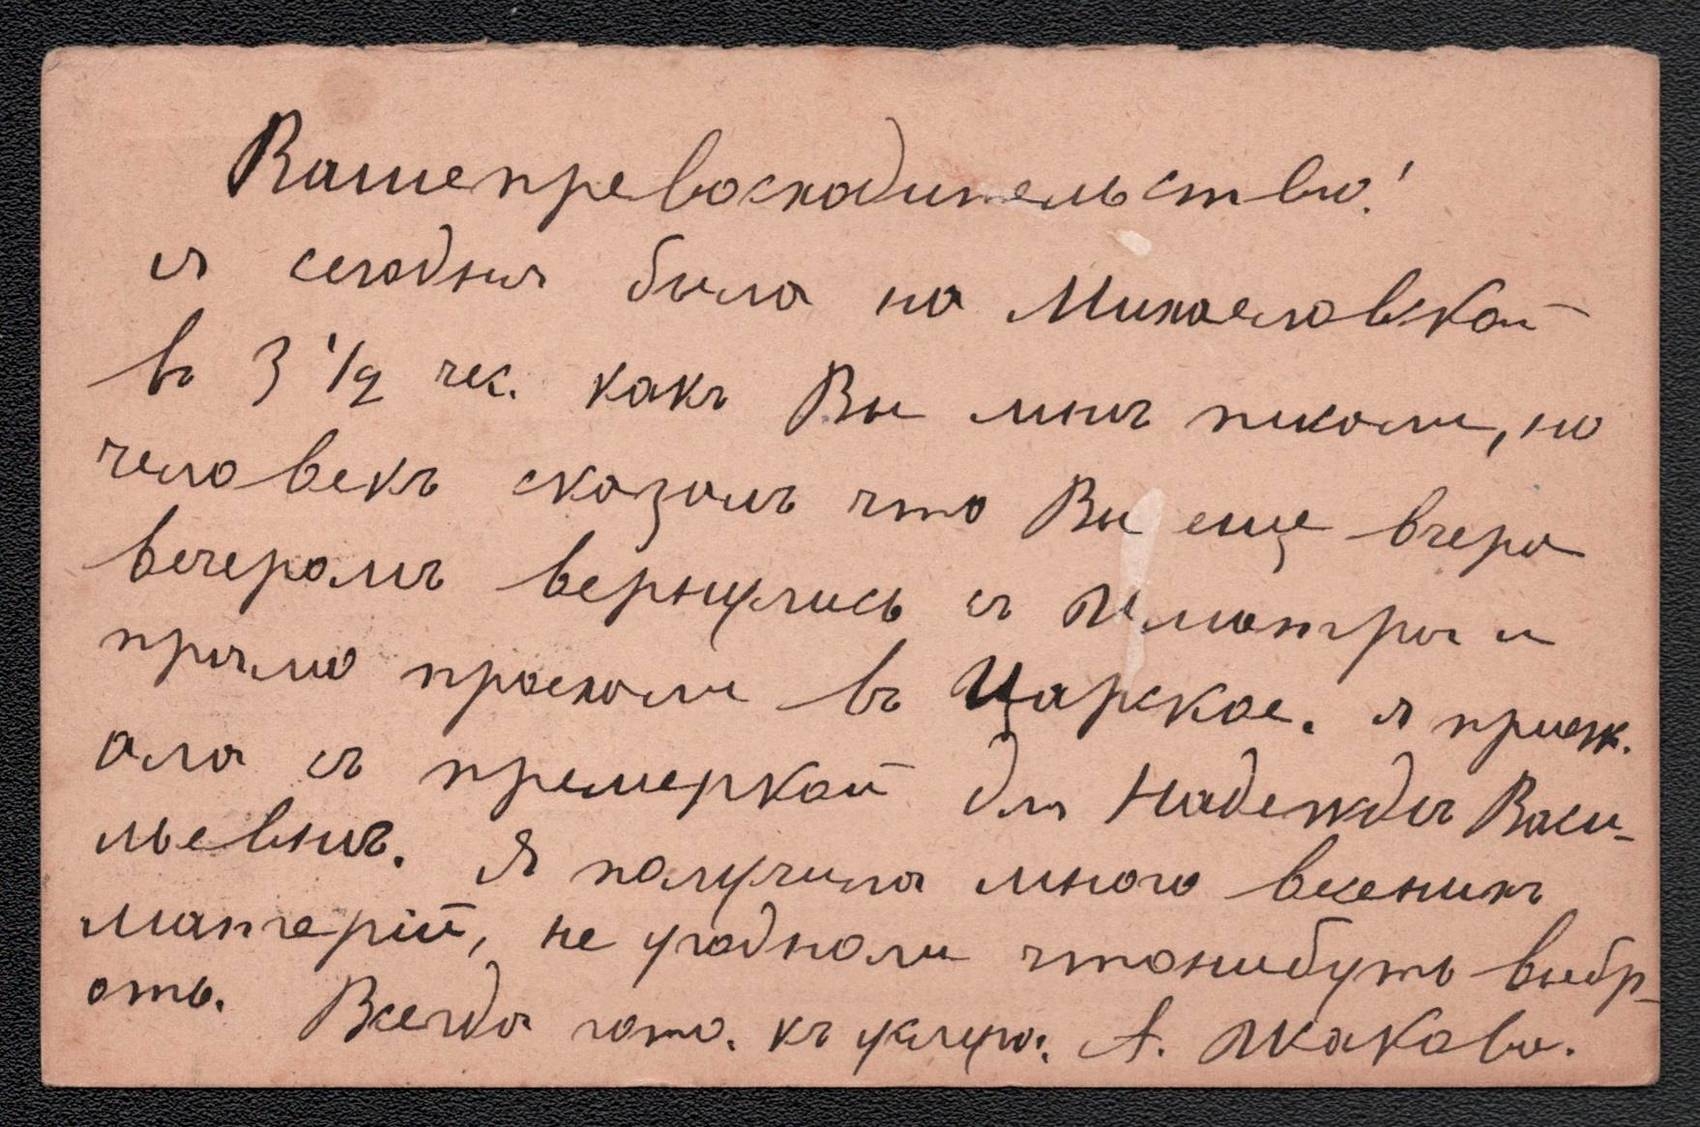 Вашепревосходительство!
я сегодня была на Михаеловской
въ 3 1/2 чес. какъ Вы мнѣ писали, но
человекъ сказалъ что Вы еще вчера
вечеромъ вернулись съ Иматры и
прямо проехали въ Царское. я приеж.
ала съ премеркой для Надежды Васи-
льевнѣ. Я получила много весенихъ
матерiй, не угодноли чтонибуть выбр-
ать. Всегда гото. къ услуга. А. Жакова.